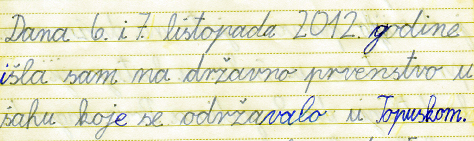 Dana 6. i 7. listopada 2012. godine
išla sam na državno prvenstvo u
šahu koje se održavalo u Topuskom.